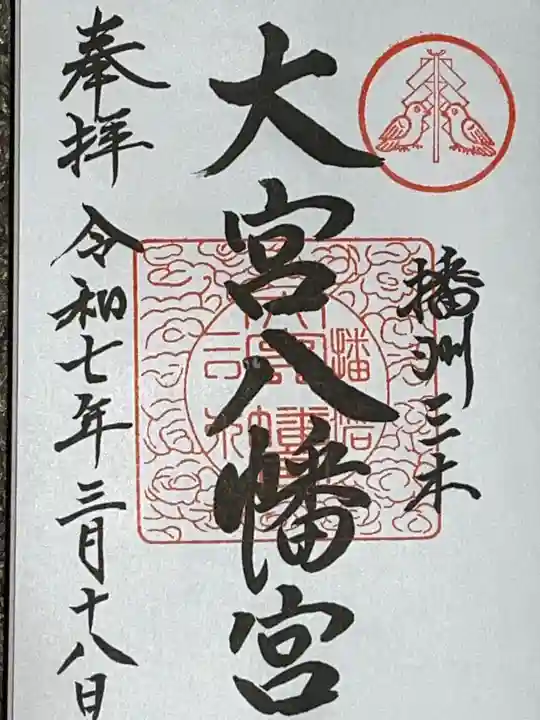 播州三木
大宮八幡宮
奉拝 令和七年三月十八日